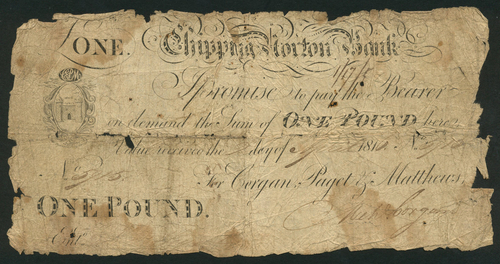 ONE. Chipping Norton Bank
I promise to pay the Bearer
on demand the Sum of ONE POUND here or
Value received the day of 181
For Corgan, Paget & Matthews,
ONE POUND.
Ent.